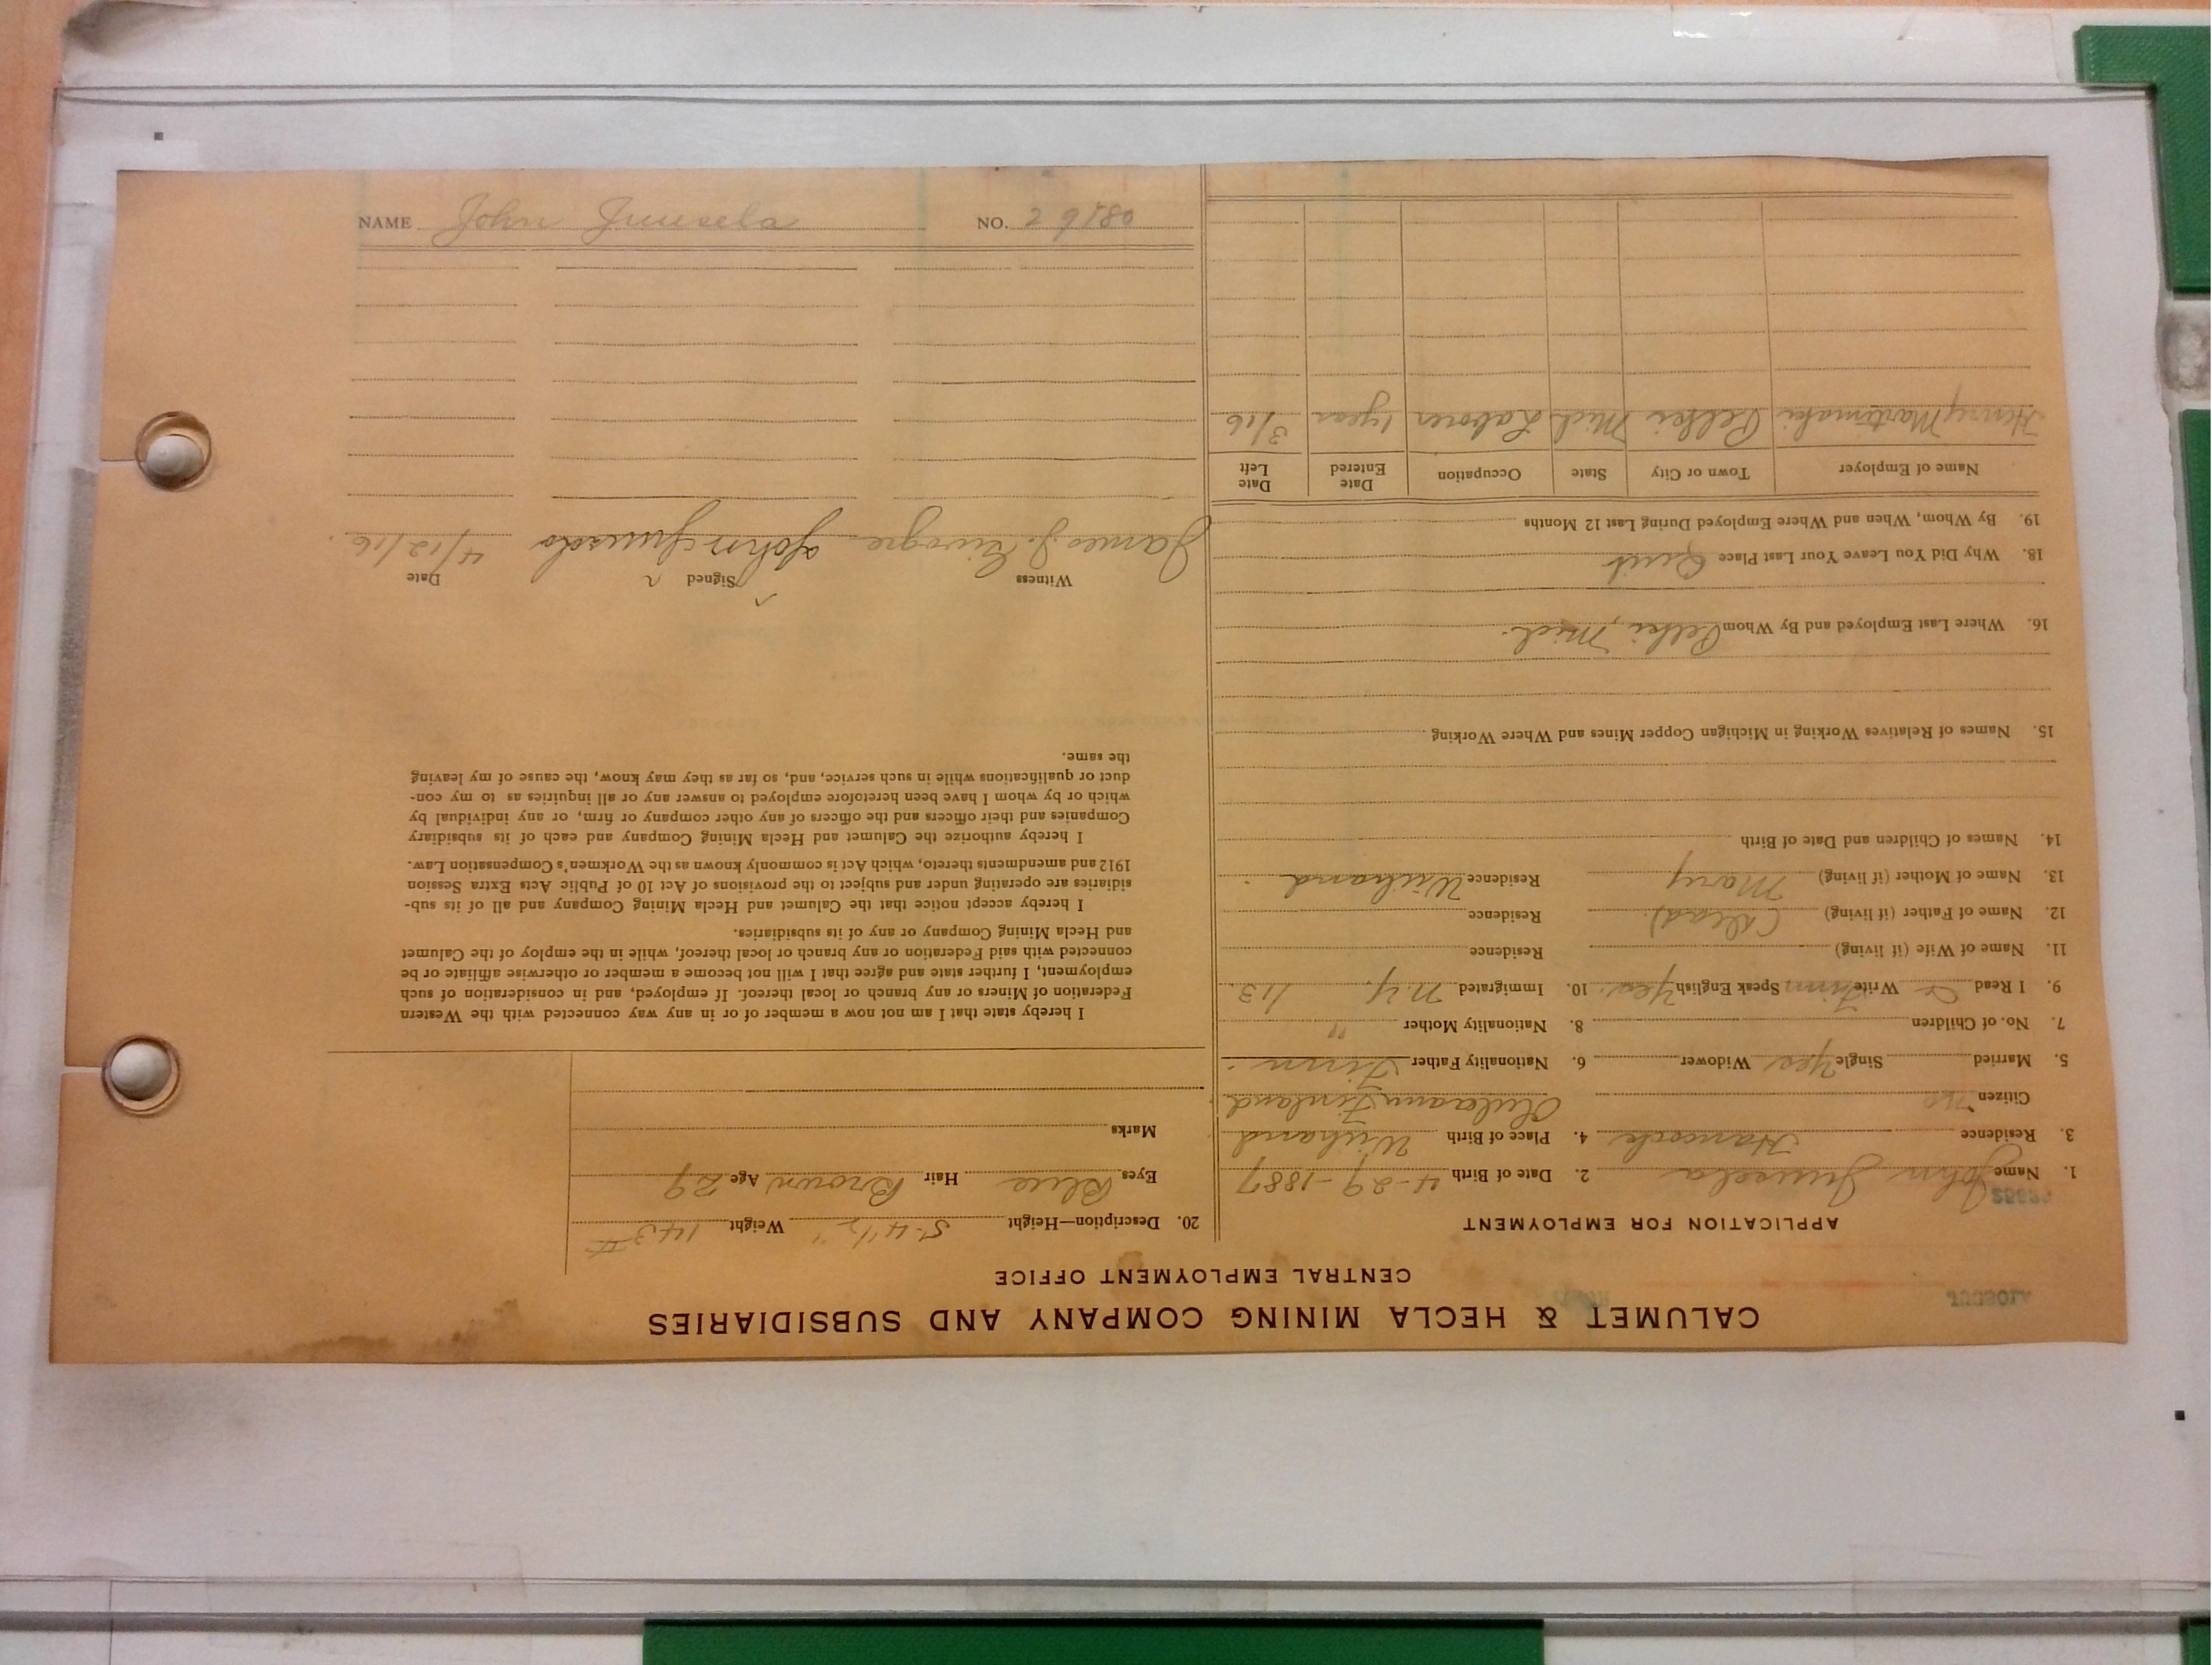 CALUMET & HECLA MINING COMPANY AND SUBSIDIARIES
CENTRAL EMPLOYMENT OFFICE
APPLICATION FOR EMPLOYMENT
1. Name John Juusela 2. Date of Birth 4-29-1887
3. Residence Hancock 4. Place of Birth
Citizen No Finland
5. Married Single Yes Widower 6. Nationality Father Finn
7. No. of Children 8. Nationality Mother "
9. I Read & Write Finn Speak English Yes. 10. Immigrated N.Y. 113.
11. Name of Wife (if living) Residence
12. Name of Father (if living) (Dead). Residence
13. Name of Mother (if living) Mary Residence
14. Names of Children and Date of Birth
15. Names of Relatives Working in Michigan Copper Mines and Where Working
16. Where Last Employed and By Whom Pelkie, Mich.
18. Why Did You Leave Your Last Place Quit
19. By Whom, When and Where Employed During Last 12 Months
Name of Employer Town or City State Occupation Date Entered Date Left
Henry Martimaki Pelkie Mich Laborer 1 year 3/16
20. Description—Height 5-4½" Weight 143 #
Eyes Blue Hair Brown Age 29
Marks
I hereby state that I am not now a member of or in any way connected with the Western
Federation of Miners or any branch or local thereof. If employed, and in consideration of such
employment, I further state and agree that I will not become a member or otherwise affiliate or be
connected with said Federation or any branch or local thereof, while in the employ of the Calumet
and Hecla Mining Company or any of its subsidiaries.
I hereby accept notice that the Calumet and Hecla Mining Company and all of its sub-
sidiaries are operating under and subject to the provisions of Act 10 of Public Acts Extra Session
1912 and amendments thereto, which Act is commonly known as the Workmen's Compensation Law.
I hereby authorize the Calumet and Hecla Mining Company and each of its subsidiary
Companies and their officers and the officers of any other company or firm, or any individual by
which or by whom I have been heretofore employed to answer any or all inquiries as to my con-
duct or qualifications while in such service, and, so far as they may know, the cause of my leaving
the same.
Witness Signed Date
James J. John Juusela 4/12/16.
NAME John Juusela NO. 29180